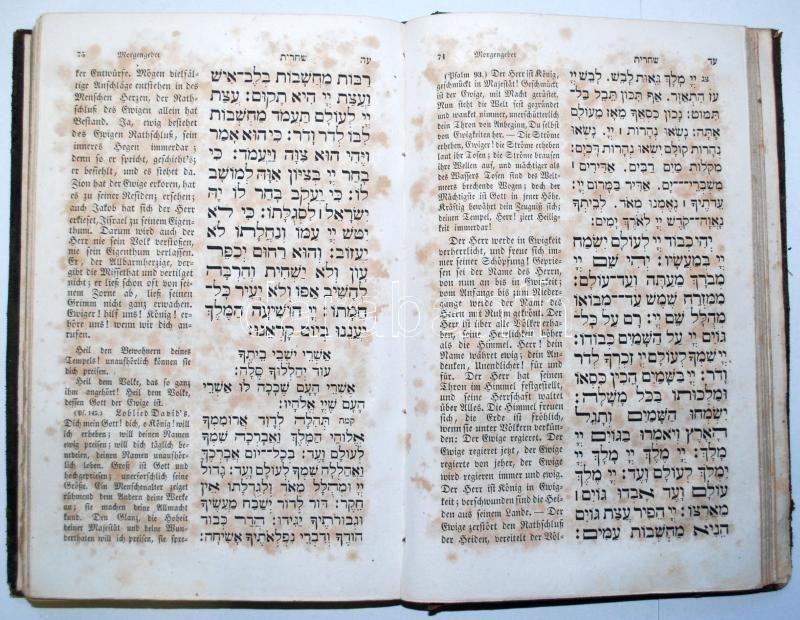 74 Morgengebet שחרית עד
(Psalm 93.) Der Herr ist König,
geschmückt in Majestät! Geschmückt
ist der Ewige, mit Macht gerüstet.
Nun steht die Welt fest gegründet
und wanket nimmer, unerschütterlich
dein Thron von Anbeginn, Du selbst
von Ewigkeiten her. — Die Ströme
erheben, Ewiger! die Ströme erheben
laut ihr Tosen; die Ströme brausen
ihre Wellen auf, und mächtiger als
des Wassers Tosen sind des Welt-
meers brechende Wogen; doch der
Mächtigste ist Gott in jener Höhe.
Kräftig bewährt dein Zeugniß sich;
deinen Tempel, Herr! ziert Heilig-
keit immerdar!
Der Herr werde in Ewigkeit
verherrlicht, und freue sich im-
mer seiner Schöpfung! Geprie-
sen sei der Name des Herrn,
von nun an bis in Ewigkeit;
vom Aufange bis zum Nieder-
gange werde der Name des
Herrn mit Ruhm genannt. Der
Herr ist über alle Völker erha-
ben, seine Herrlichkeit höher
als die Himmel. Herr! dein
Name währet ewig; dein An-
denken, Unendlicher! für und
für. Der Herr hat seinen
Thron im Himmel festgestellt,
und seine Herrschaft waltet
über Alles. Die Himmel freuen
sich, die Erde ist fröhlich,
wenn sie unter Völkern verkün-
den: Der Ewige regieret. Der
Ewige regiert jetzt, der Ewige
regierte von jeher, der Ewige
wird regieren immer und ewig.
Der Herr ist König in Ewig-
keit; verschwunden sind die Hei-
den aus seinem Lande. — Der
Ewige zerstört den Rathschluß
der Heiden, vereitelt der Völ-
יי מלך גאות לבש, לבש יי
עז התאזר, אף תכון תבל בל־
תמוט: נכון כסאך מאז מעולם
אתה: נשאו נהרות יי, נשאו
נהרות קולם ישאו נהרות דכים:
מקלות מים רבים, אדירים
משברי־ים, אדיר במרום יי:
עדתיך נאמנו מאד, לביתך
נאוה־קדש יי לארך ימים:
יהי כבוד יי לעולם ישמח
יי במעשיו: יהי שם יי
מברך מעתה ועד־עולם:
ממזרח שמש עד־מבואו
מהלל שם יי: רם על־כל־
גוים יי על השמים כבודו:
יי שמך לעולם יי זכרך לדר
ודר: יי בשמים הכין כסאו
ומלכותו בכל משלה:
ישמחו השמים ותגל
הארץ ויאמרו בגוים יי
מלך: יי מלך יי מלך יי
ימלך לעולם ועד: יי מלך
עולם ועד אבדו גוים
מארצו: יי הפיר עצת גוים
הניא מחשבות עמים:
75 Morgengebet שחרית עה
ker Entwürfe. Mögen vielfäl-
tige Anschläge entstehen in des
Menschen Herzen, der Rath-
schluß des Ewigen allein hat
Bestand. Ja, ewig bestehet
des Ewigen Rathschluß, sein
inneres Hegen immerdar;
denn so er spricht, geschieht's;
er befiehlt, und es stehet da.
Zion hat der Ewige erkoren, hat
es zu seiner Residenz ersehen;
auch Jakob hat sich der Herr
erkieset, Jisrael zu seinem Eigen-
thum. Darum wird auch der
Herr nie sein Volk verstoßen,
nie sein Eigenthum verlassen.
Er, der Allbarmherzige, ver-
gibt die Missethat und vertilget
nicht; er ließ schon oft von sei-
nem Zorne ab, ließ seinen
Grimm nicht ganz erwachen.
Ewiger! hilf uns! König! er-
höre uns! wenn wir dich an-
rufen.
Heil den Bewohnern deines
Tempels! unaufhörlich können sie
dich preisen.
Heil dem Volke, das so ganz
ihm angehört! Heil dem Volke,
dessen Gott der Ewige ist.
(Ps. 145.) Loblied David's.
Dich mein Gott! dich, o König! will
ich erheben; will deinen Namen
ewig preisen; will dich täglich be-
nedeien, deinen Namen unaufhör-
lich loben. Groß ist Gott und
hochgepriesen; unerforschlich seine
Größe. Ein Menschenalter zeigt
rühmend dem Andern deine Werke
an; sie machen deine Allmacht
kund. Den Glanz, die Hoheit
deiner Majestät und deine Wun-
derthaten will ich preisen, sie spre-
רבות מחשבות בלב־איש
ועצת יי היא תקום: עצת
יי לעולם תעמד מחשבות
לבו לדר ודר: כי הוא אמר
ויהי הוא צוה ויעמד: כי
בחר יי בציון אוה למושב
לו: כי יעקב בחר לו יה
ישראל לסגלתו: כי לא
יטש יי עמו ונחלתו לא
יעזוב: והוא רחום יכפר
עון ולא ישחית והרבה
להשיב אפו ולא יעיר כל־
חמתו: יי הושיעה המלך
יעננו ביום קראנו:
אשרי יושבי ביתך
עוד יהללוך סלה:
אשרי העם שככה לו אשרי
העם שיי אלהיו:
קמה תהלה לדוד ארוממך
אלוהי המלך ואברכה שמך
לעולם ועד: בכל־יום אברכך
ואהללה שמך לעולם ועד: גדול
יי ומהלל מאד ולגדלתו אין
חקר: דור לדור ישבח מעשיך
וגבורתיך יגידו: הדר כבוד
הודך ודברי נפלאתיך אשיחה: